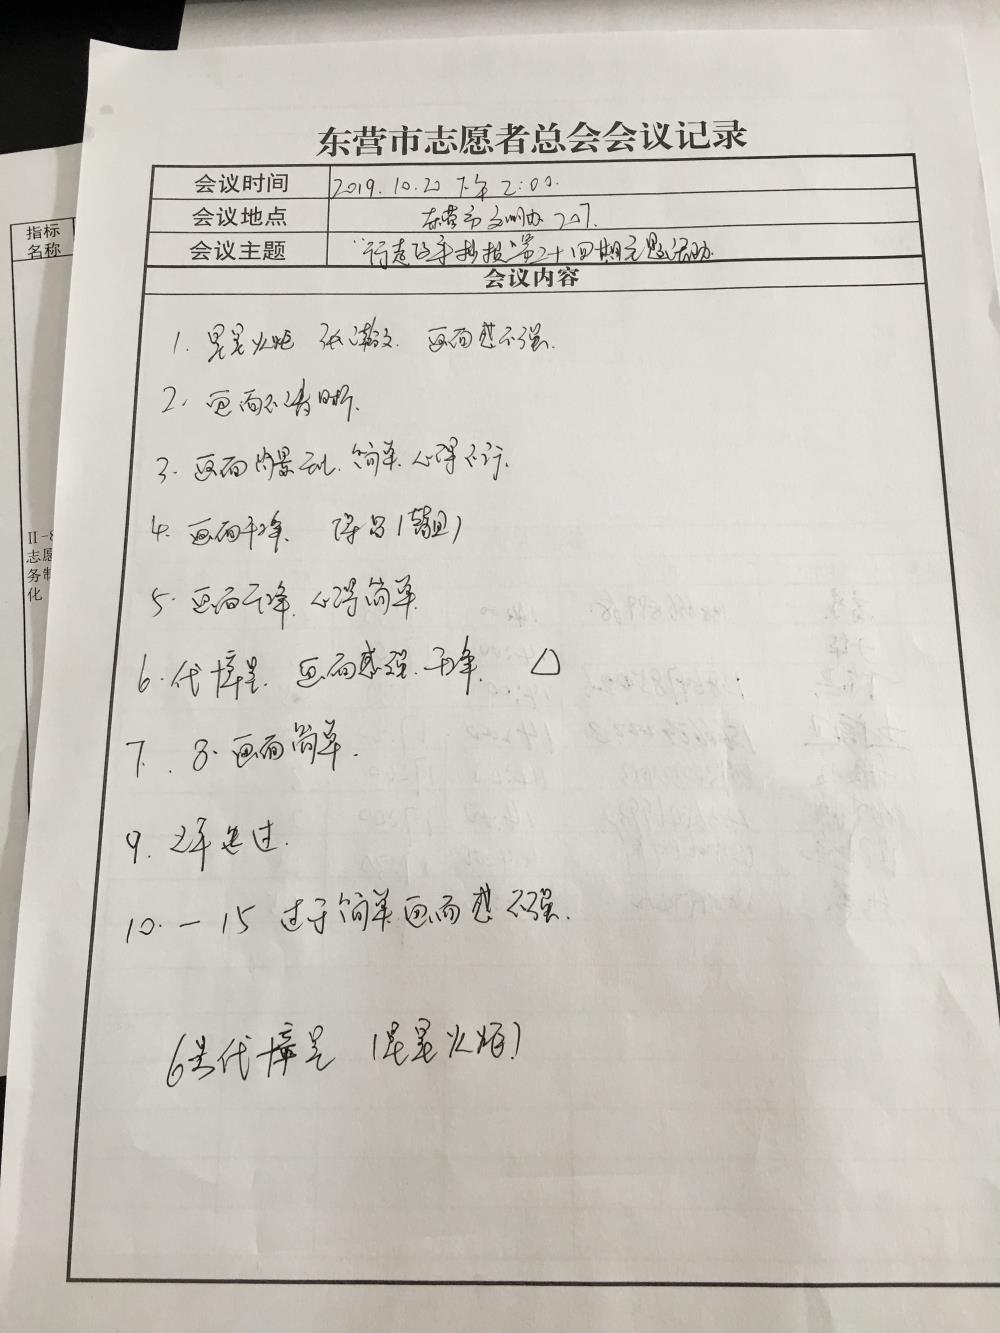 东营市志愿者总会会议记录
会议时间 2019.10.20 下午 2:00.
会议地点 东营市文明办 207.
会议主题 第二十四期主题活动
会议内容
1. 星星火炬 张瀚文. 画面感不强.
2. 画面不清晰.
3. 画面背景乱. 简单. 心得不行.
4. 画面干净.
5. 画面干净. 心得简单.
6. 代梓呈. 画面感强. 干净. △
7. 8. 画面简单.
9.
10. — 15 过于简单 画面感不强.
6号代梓呈 (星星火炬)
指标
名称
II-8
志愿
务制
化